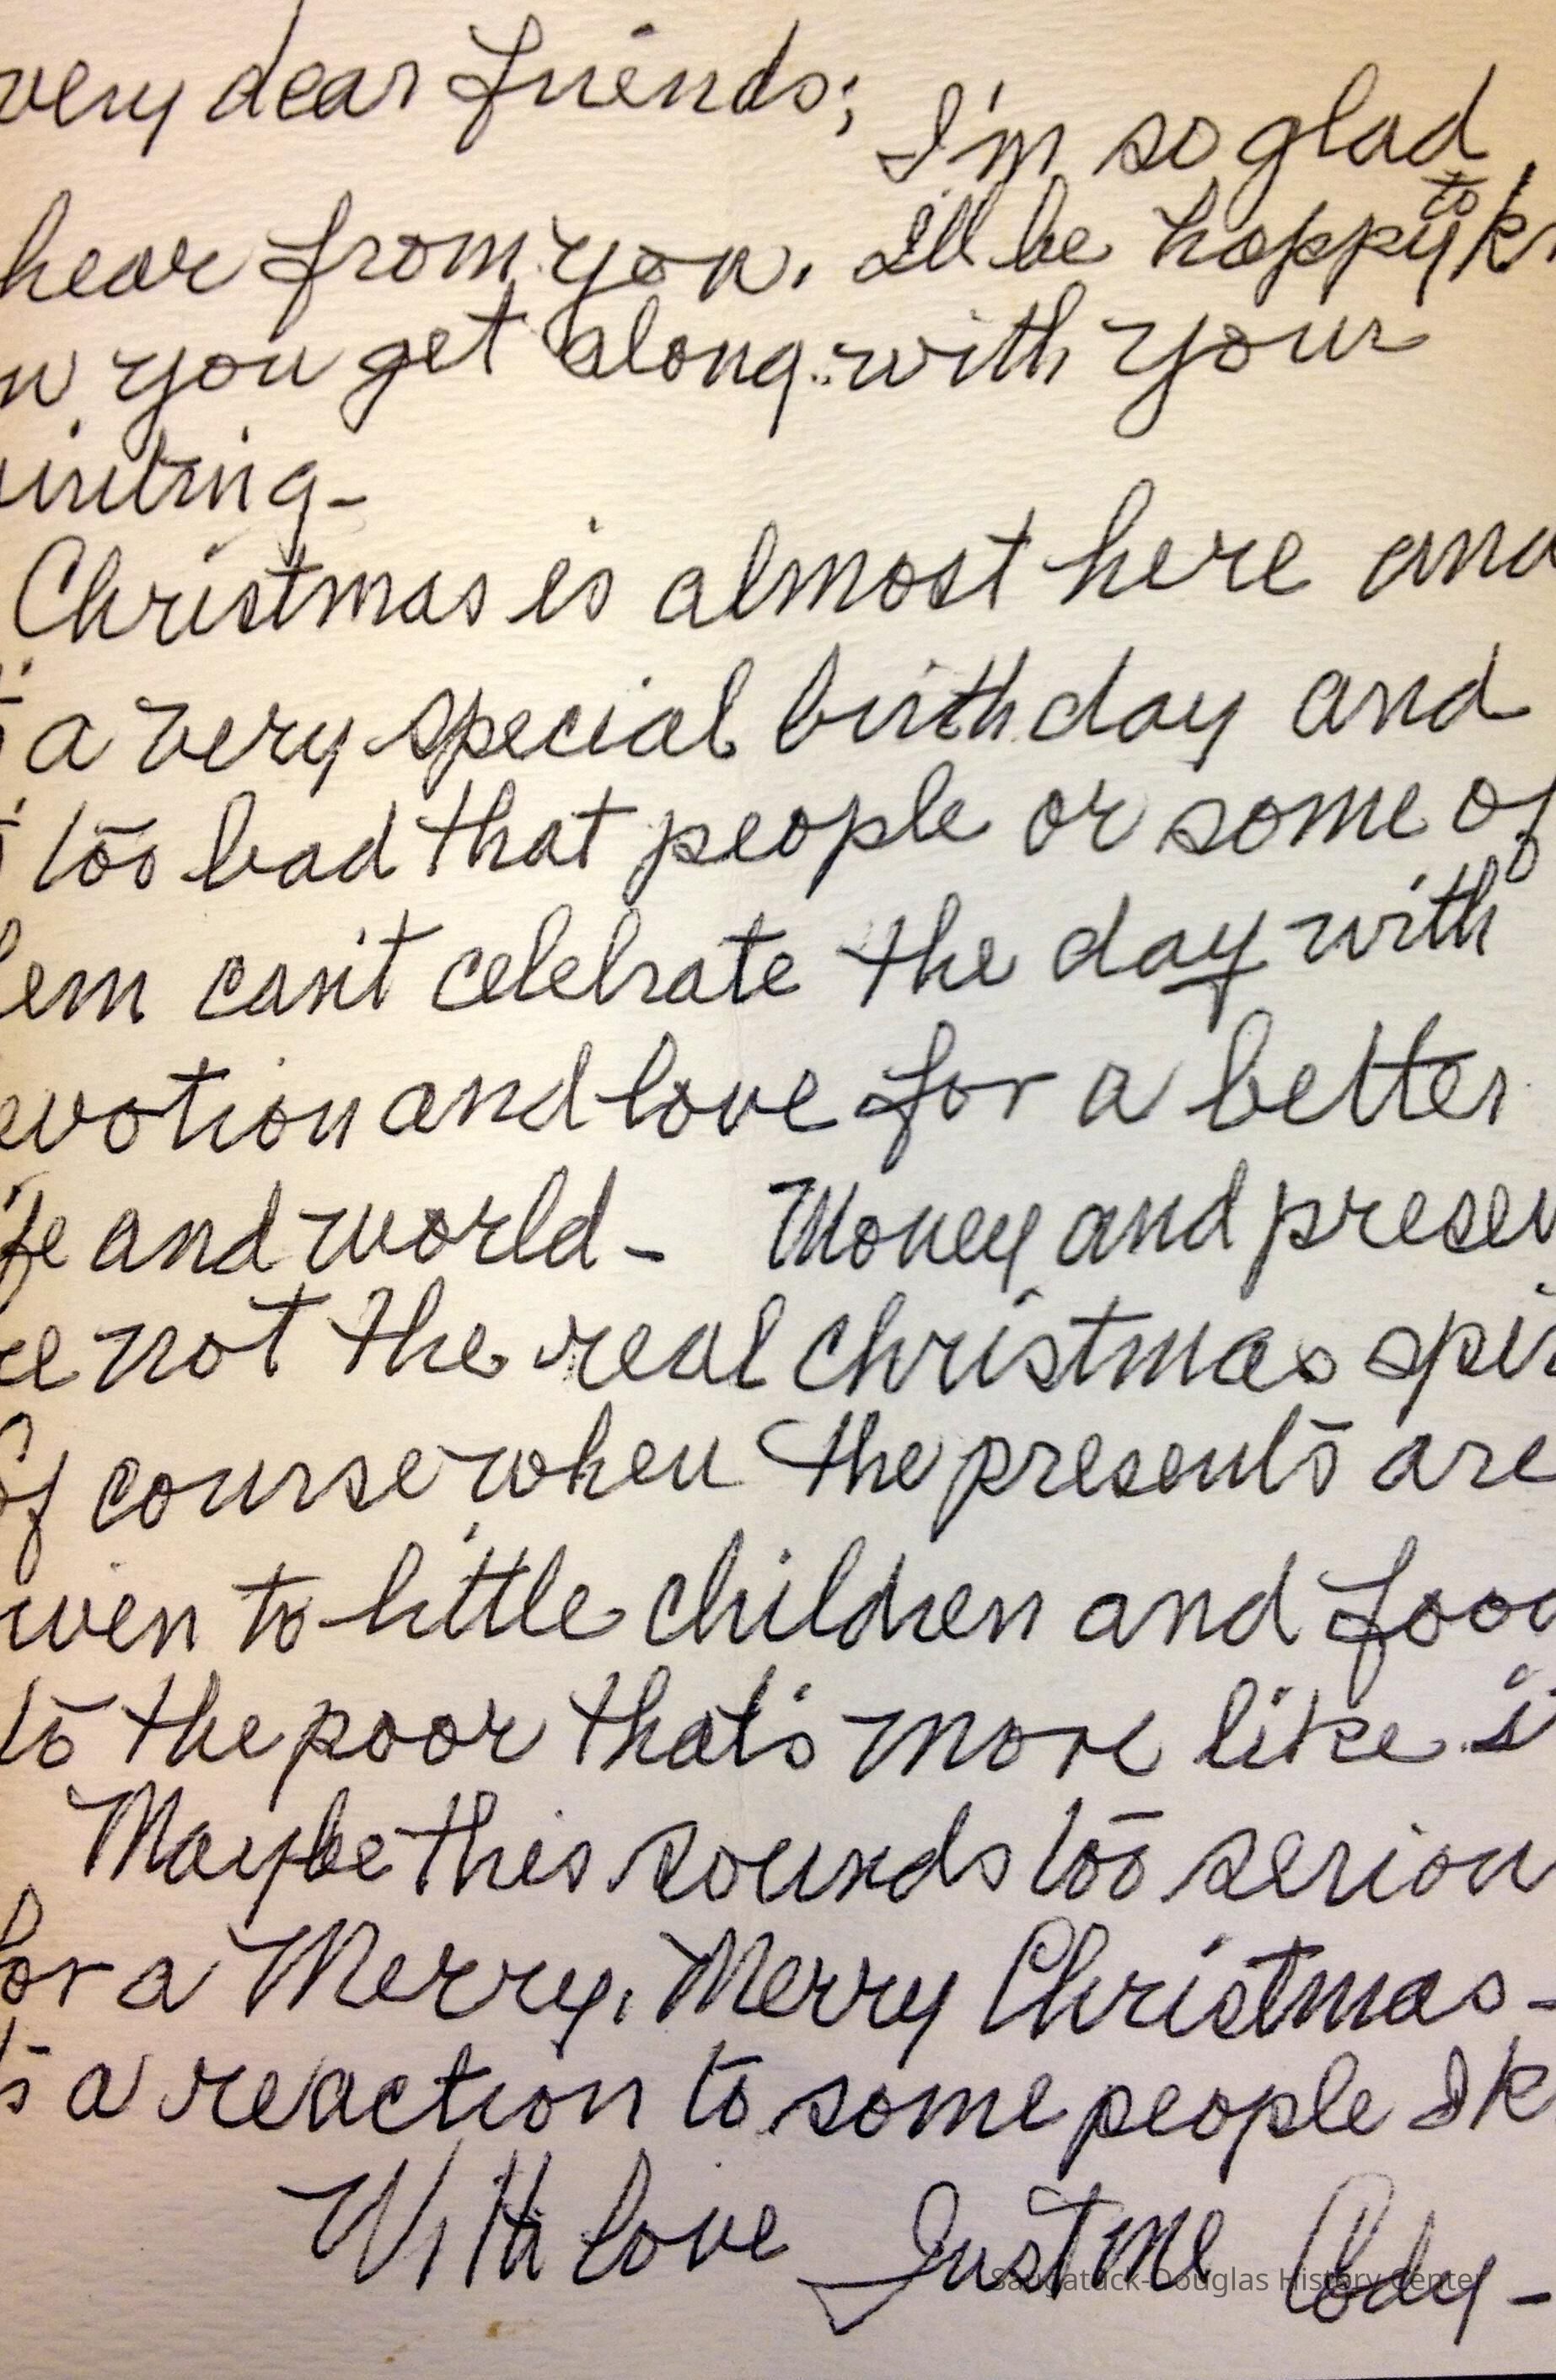 very dear friends;
I'm so glad
to
hear from you. I'll be happy k
w you get along with your
Christmas is almost here and
a very special birthday and
too bad that people or some of
em can't celebrate the day with
evotion and love for a better
fe and world - Money and presen
e not the real Christmas spir
Of course when the presents are
iven to little children and food
to the poor that's more like i
Maybe this sounds too seriou
for a Merry, Merry Christmas -
s a reaction to some people I k
With love Just me Cody -
Saugatuck-Douglas History Center